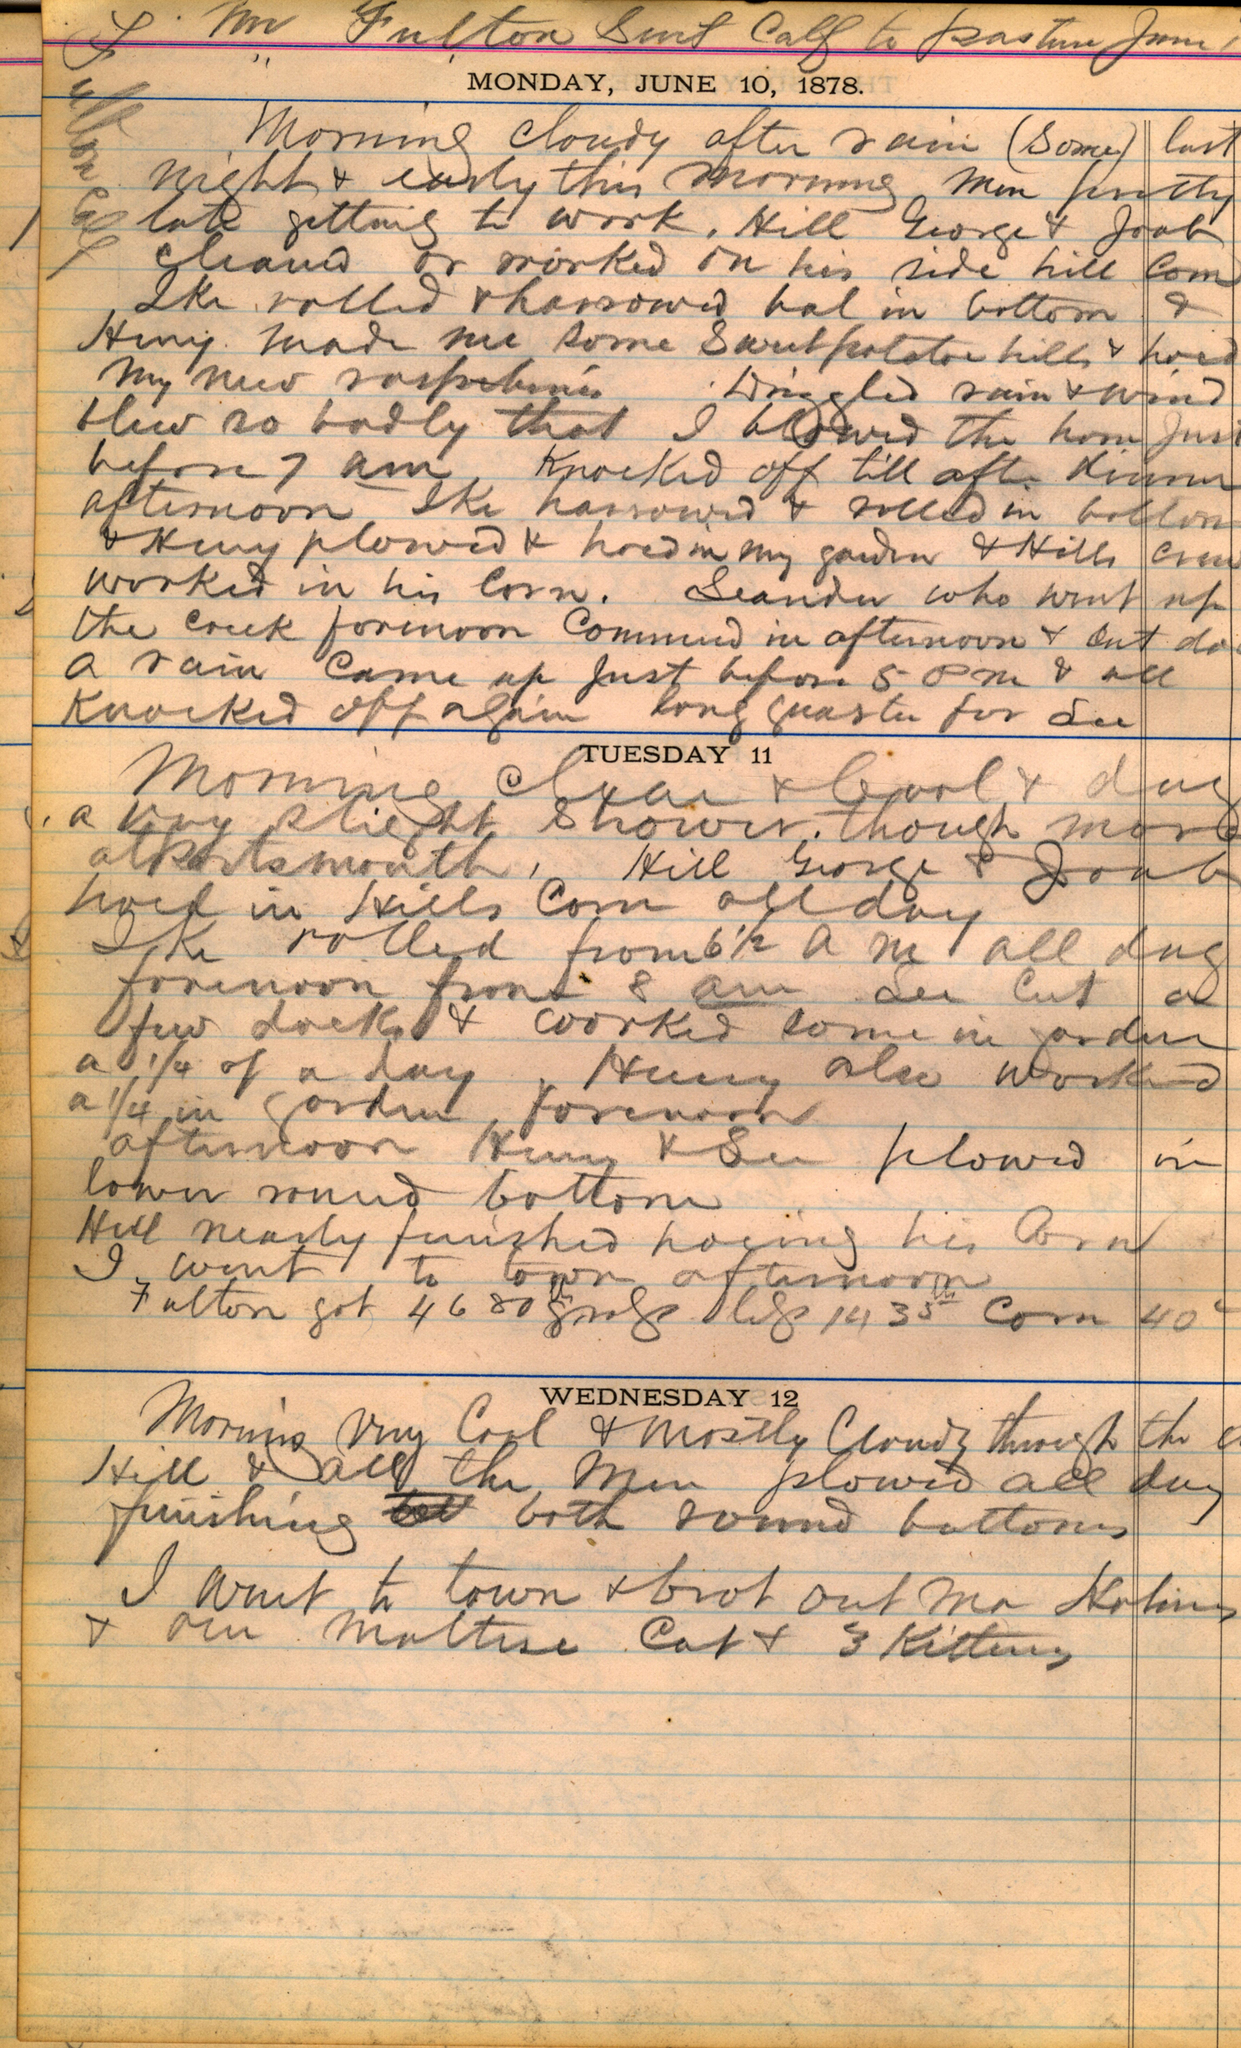 Mr Fulton Sent Calf to pasture June
Fulton Calf
MONDAY, JUNE 10, 1878.
Morning cloudy after rain (Some) last
night & early this morning Men pretty
late getting to work. Hill George & Joab
cleaned or worked on his side hill Corn
Ike rolled & harrowed bal in bottom &
Henry made me some Sweetpotatoe hills & hoed
my new raspberries . Drizzled rain & wind
blew so badly that I blowed the horn Just
before 7 am Knocked off till after dinner
afternoon Ike harrowed & rolled in bottom
& Henry plowed & hoed in my garden & Hills crew
worked in his Corn. Leander who went up
the creek forenoon Commend in afternoon & Cut do
a rain Came up Just before 5 P m & all
Knocked off again long quarter for Lee
TUESDAY 11
Morning Clear & Cool & day
a very slight Shower, though more
at Portsmouth, Hill George & Joab
hoed in Hills Corn all day
Ike rolled from 6½ A M all day
forenoon from 8 am Lee Cut a
few docks & worked some in garden
a ¼ of a day, Henry also worked
a ¼ in garden forenoon
afternoon Henry & Lee plowed in
lower round bottom
Hill nearly finished hoeing his Corn
I went to town afternoon
Fulton got 4680 Corn 40c
WEDNESDAY 12
Morning very Cool & mostly Cloudy through the d
Hill & all the Men plowed all day
finishing both round bottoms
I went to town & brot out Ma
& our Maltese Cat & 3 Kittens